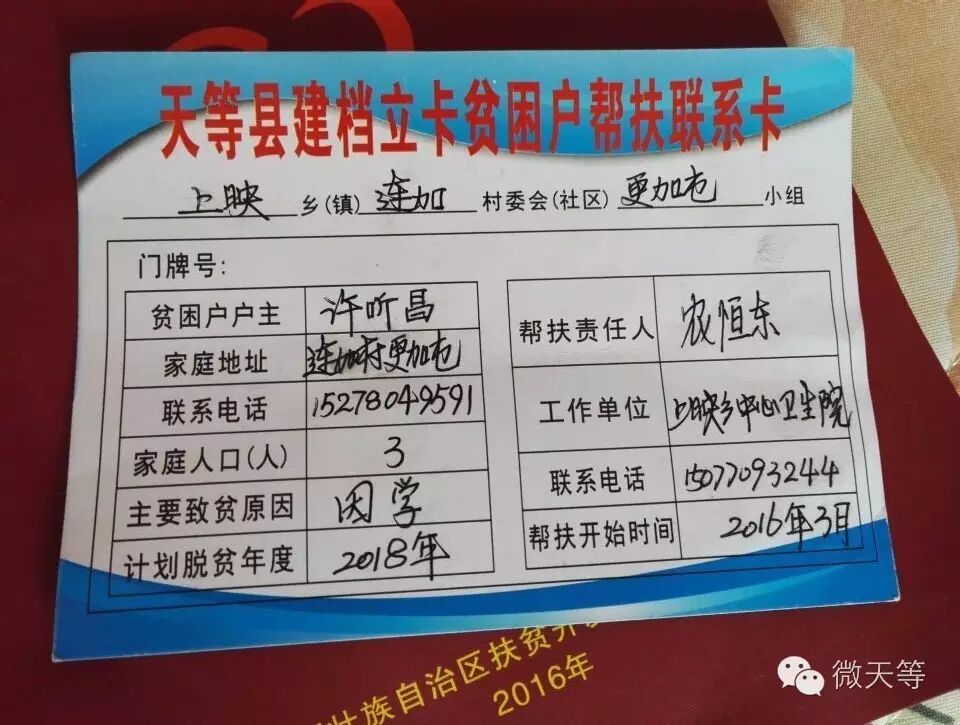 天等县建档立卡贫困户帮扶联系卡
上映乡(镇)连加村委会(社区)更加屯小组
门牌号:
贫困户户主 许昕昌
家庭地址 连加村更加屯
联系电话 15278049591
家庭人口(人) 3
主要致贫原因 因学
计划脱贫年度 2018年
帮扶责任人 农恒东
工作单位 上映乡中心卫生院
联系电话 15077093244
帮扶开始时间 2016年3月
壮族自治区扶贫开
2016年
微天等